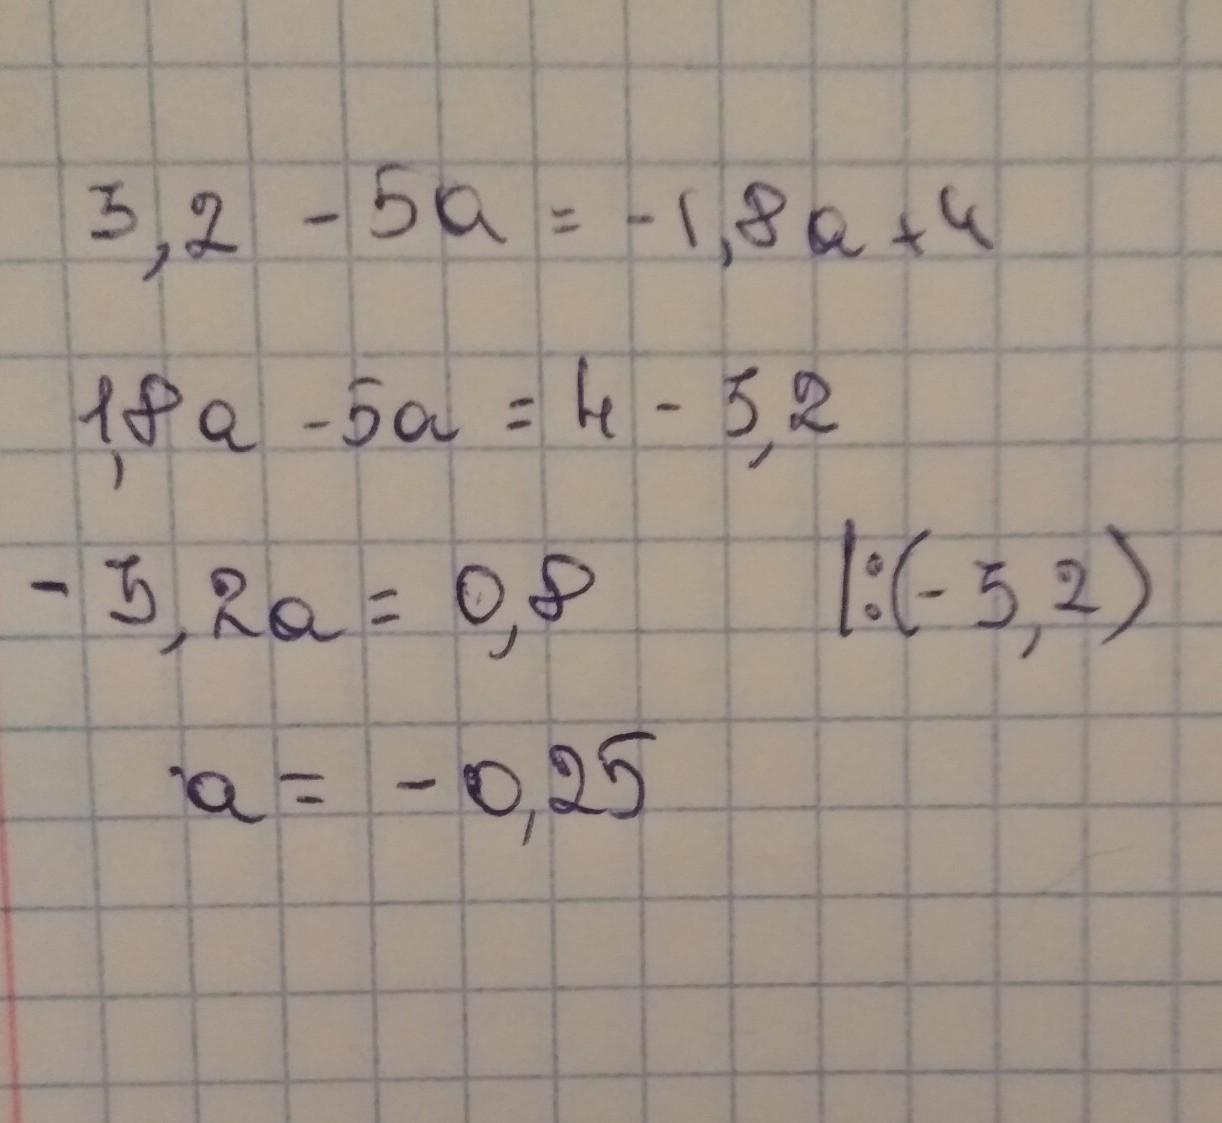 3,2 - 5a = -1,8a + 4
1,8a - 5a = 4 - 3,2
- 3,2a = 0,8 |:(- 3,2)
a = - 0,25